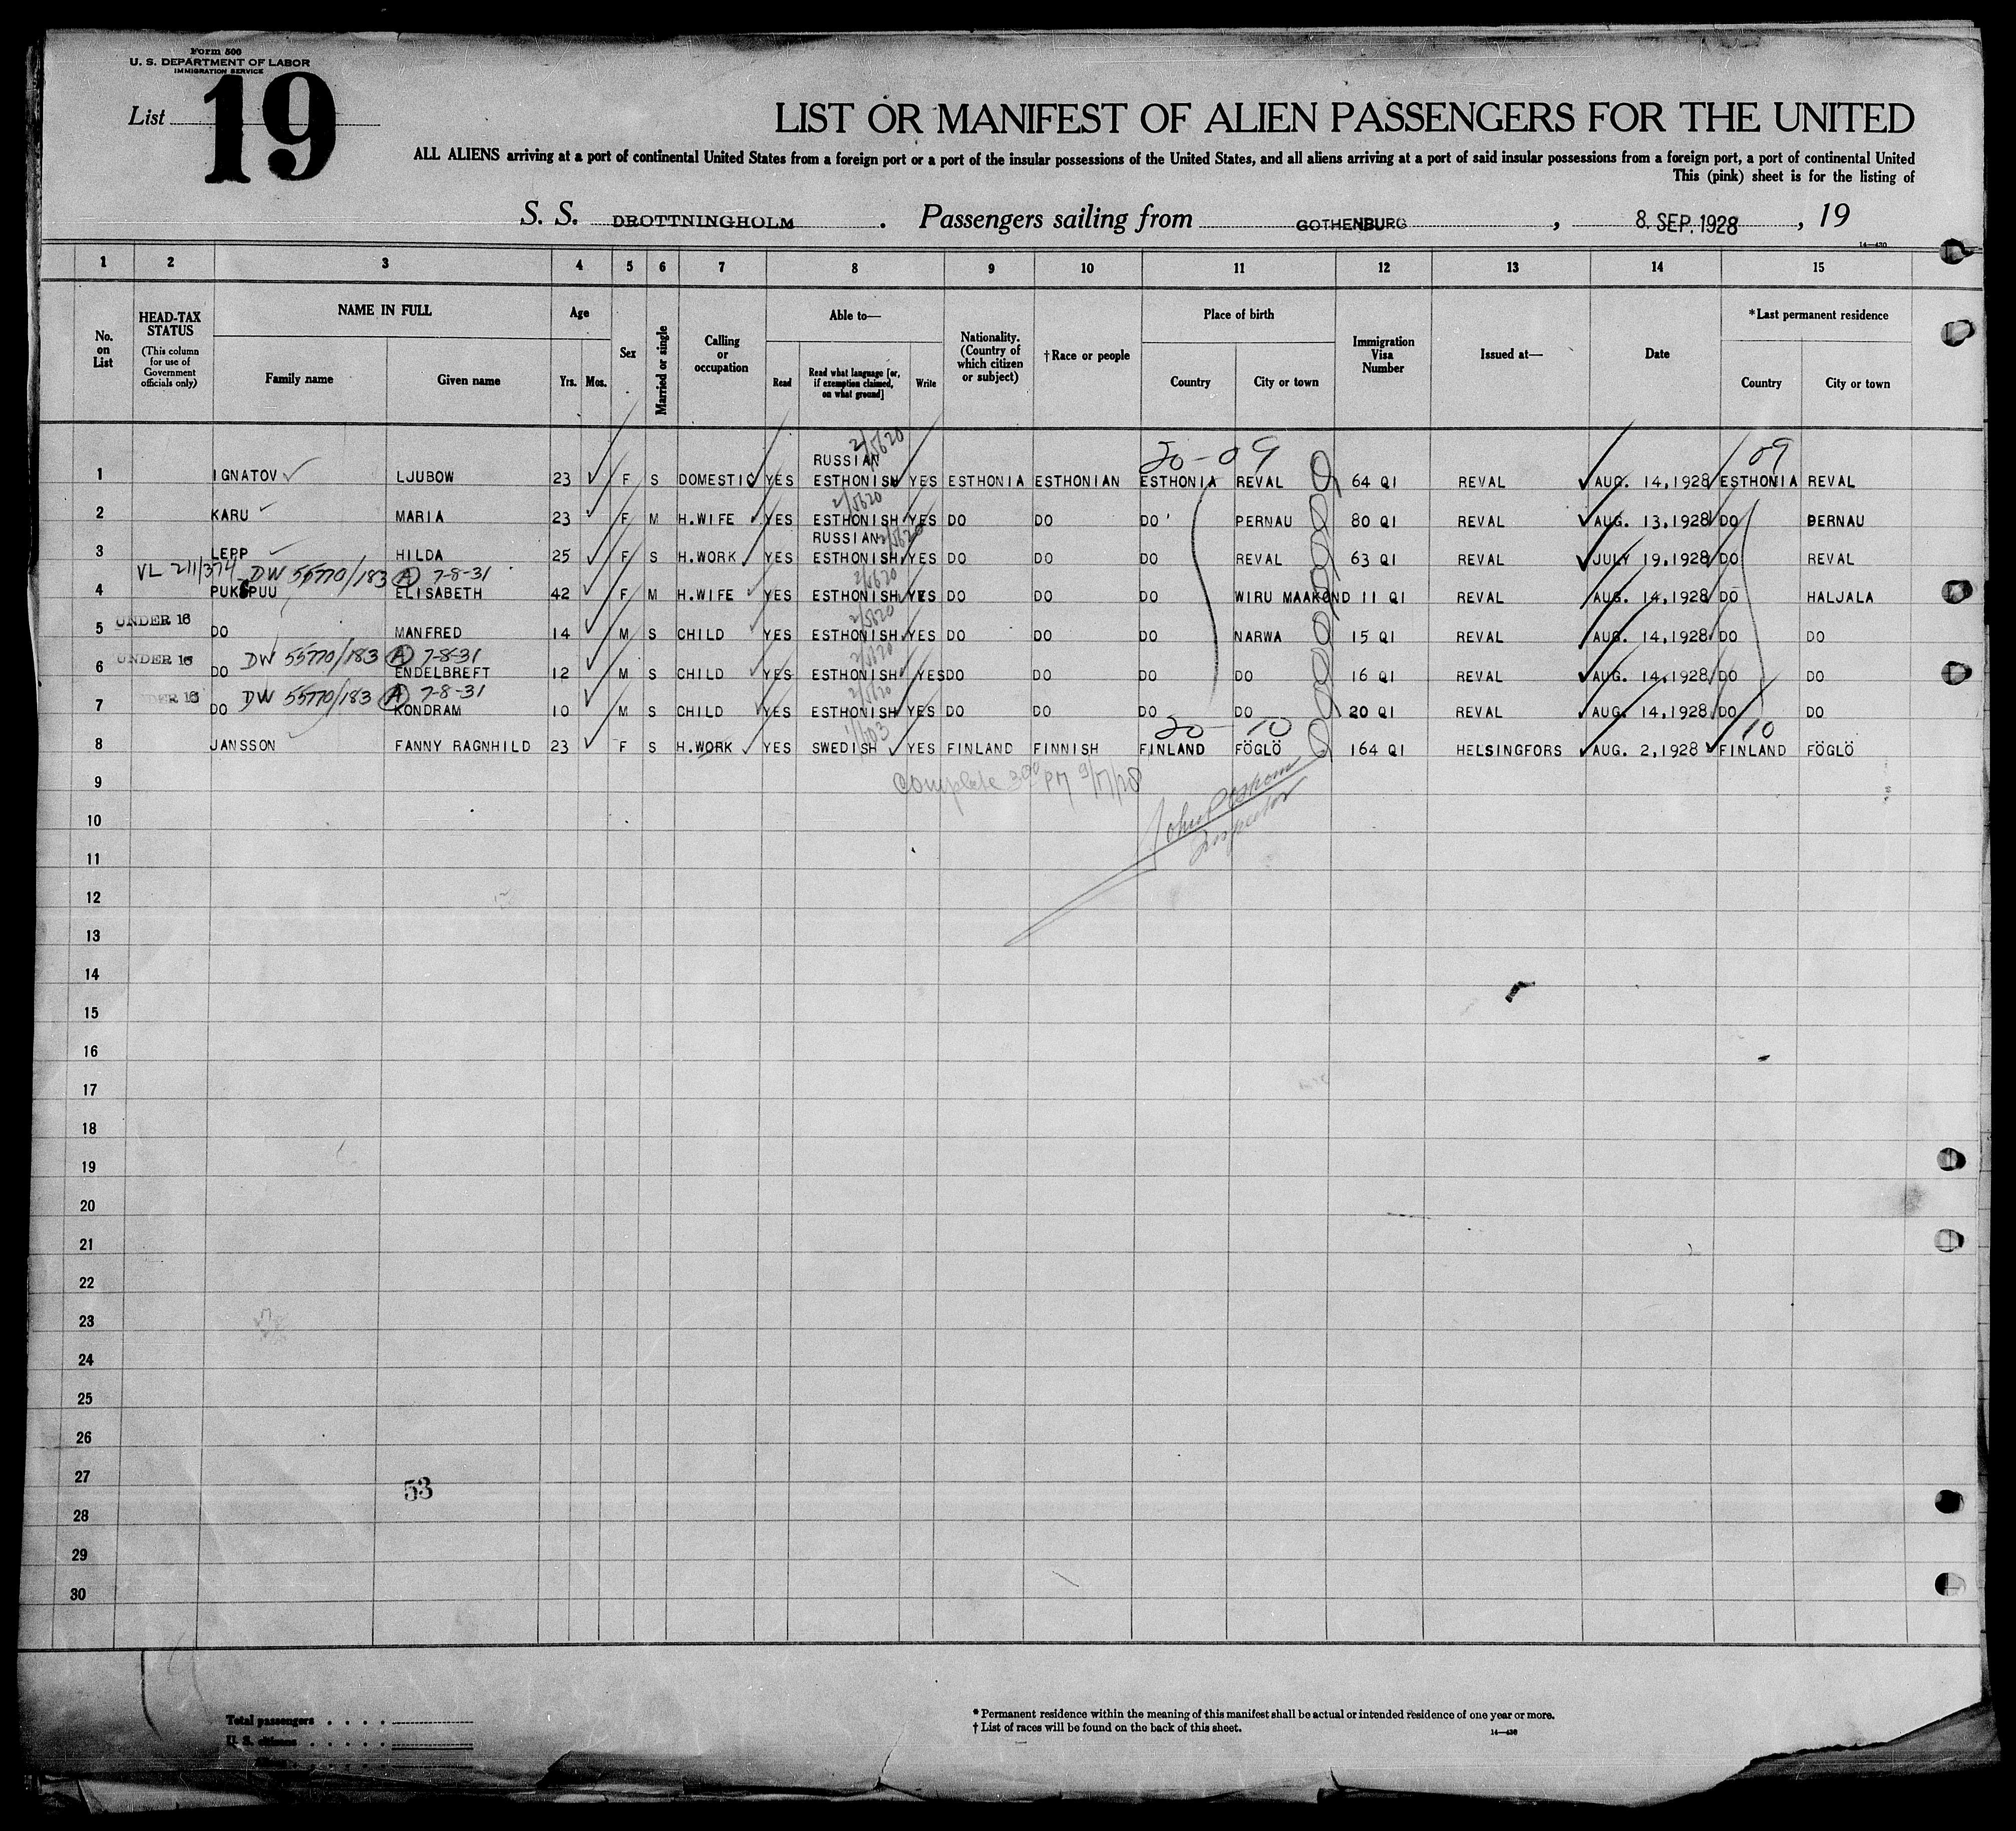 Form 500
U. S. DEPARTMENT OF LABOR
IMMIGRATION SERVICE
List 19
LIST OR MANIFEST OF ALIEN PASSENGERS FOR THE UNITED
ALL ALIENS arriving at a port of continental United States from a foreign port or a port of the insular possessions of the United States, and all aliens arriving at a port of said insular possessions from a foreign port, a port of continental United
This (pink) sheet is for the listing of
S. S. DROTTNINGHOLM. Passengers sailing from GOTHENBURG, 8. SEP. 1928, 19
14—430
1 2 3 4 5 6 7 8 9 10 11 12 13 14 15
No. on List
HEAD-TAX STATUS (This column for use of Government officials only)
NAME IN FULL
Family name Given name
Age
Yrs. Mos.
Sex
Married or single
Calling or occupation
Able to—
Read
Read what language [or, if exemption claimed, on what ground]
Write
Nationality. (Country of which citizen or subject)
†Race or people
Place of birth
Country City or town
Immigration Visa Number
Issued at—
Date
*Last permanent residence
Country City or town
20-09 09
2/5620
RUSSIAN
1 IGNATOV LJUBOW 23 F S DOMESTIC YES ESTHONISH YES ESTHONIA ESTHONIAN ESTHONIA REVAL 64 QI REVAL AUG. 14,1928 ESTHONIA REVAL
2/5620
2 KARU MARIA 23 F M H.WIFE YES ESTHONISH YES DO DO DO PERNAU 80 QI REVAL AUG. 13,1928 DO PERNAU
RUSSIAN 2/5620
3 LEPP HILDA 25 F S H.WORK YES ESTHONISH YES DO DO DO REVAL 63 QI REVAL JULY 19,1928 DO REVAL
VL 211/374 DW 55770/183 A 7-8-31
2/5620
4 PUKSPUU ELISABETH 42 F M H.WIFE YES ESTHONISH YES DO DO DO WIRU MAAKOND 11 QI REVAL AUG. 14,1928 DO HALJALA
UNDER 16
2/5620
5 DO MANFRED 14 M S CHILD YES ESTHONISH YES DO DO DO NARWA 15 QI REVAL AUG. 14,1928 DO DO
UNDER 16 DW 55770/183 A 7-8-31
2/5620
6 DO ENDELBREFT 12 M S CHILD YES ESTHONISH YES DO DO DO DO 16 QI REVAL AUG. 14,1928 DO DO
UNDER 16 DW 55770/183 A 7-8-31
2/5620
7 DO KONDRAM 10 M S CHILD YES ESTHONISH YES DO DO DO DO 20 QI REVAL AUG. 14,1928 DO DO
1/603 20-10 10
8 JANSSON FANNY RAGNHILD 23 F S H.WORK YES SWEDISH YES FINLAND FINNISH FINLAND FÖGLÖ 164 QI HELSINGFORS AUG. 2,1928 FINLAND FÖGLÖ
Complete 3 00 PM 9/17/28
9
John
Inspector
10
11
12
13
14
15
16
17
18
19
20
21
22
23
24
25
26
27
53
28
29
30
Total passengers . . . .
U. S. citizens . . . . .
Aliens . . . .
* Permanent residence within the meaning of this manifest shall be actual or intended residence of one year or more.
† List of races will be found on the back of this sheet.
14—430